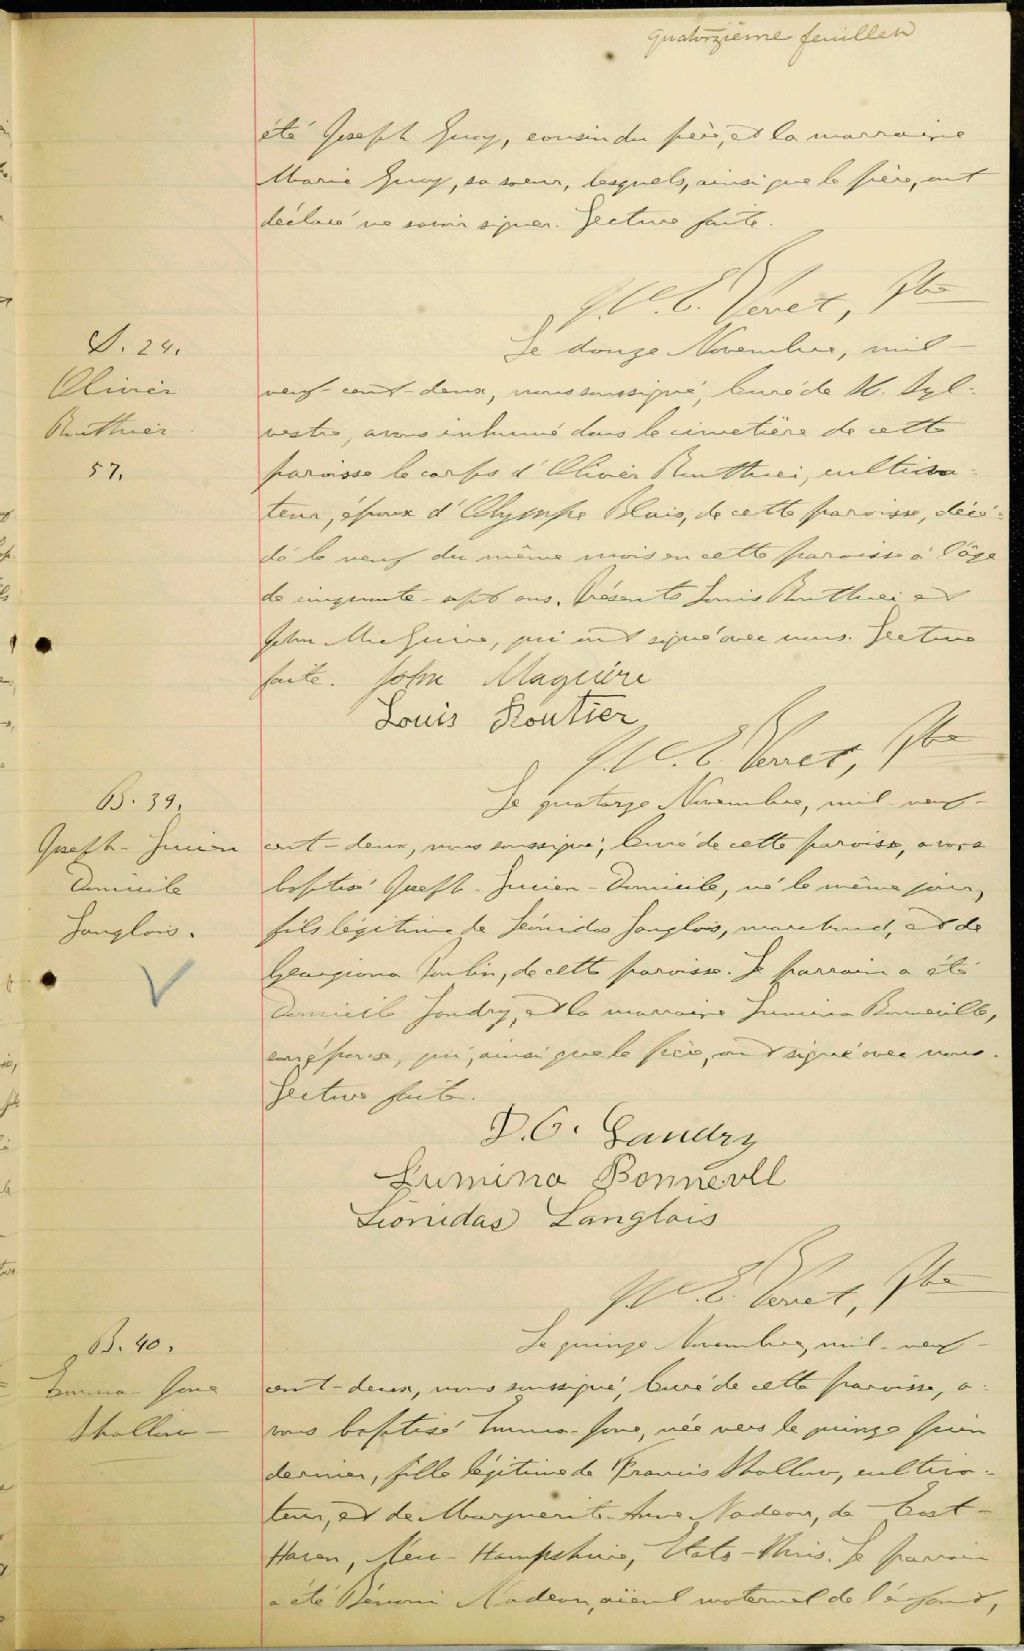 quatorzième feuillet
été Joseph Guay, cousin du père, et la marraine
Marie Guay, sa soeur, lesquels, ainsi que le père, ont
déclaré ne savoir signer. Lecture faite.
J. W. E. Verret, Ptre
S. 24.
Olivier
Routhier
57.
Le douze Novembre, mil-
neuf-cent-deux, nous soussigné, Curé de St. Syl-
vestre, avons inhumé dans le cimetière de cette
paroisse le corps d'Olivier Routhier, cultiva-
teur, époux d'Olympe Blais, de cette paroisse, décé-
dé le neuf du même mois en cette paroisse à l'âge
de cinquante-sept ans. Présents Louis Routhier et
John McGuire, qui ont signé avec nous. Lecture
faite. John Maguire
Louis Routier
J. W. E. Verret, Ptre
B. 39.
Joseph-Lucien
Domicile
Langlois.
Le quatorze Novembre, mil-neuf-
cent-deux, nous soussigné, Curé de cette paroisse, avons
baptisé Joseph-Lucien-Domicile, né le même jour,
fils légitime de Léonidas Langlois, marchand, et de
Georgiana Poulin, de cette paroisse. Le parrain a été
Domicile Landry, et la marraine Lumina Bonneville,
son épouse, qui, ainsi que le père, ont signé avec nous.
Lecture faite.
D. G. Landry
Lumina Bonnevll
Léonidas Langlois
J. W. E. Verret, Ptre
B. 40.
Emma-Jane
Shallow
Le quinze Novembre, mil-neuf-
cent-deux, nous soussigné, Curé de cette paroisse, a-
vons baptisé Emma-Jane, née vers le quinze Juin
dernier, fille légitime de Francis Shallow, cultiva-
teur, et de Marguerite-Anne Nadeau, de East-
Haven, New-Hampshire, Etats-Unis. Le parrain
a été Bénoni Nadeau, aïeul maternel de l'enfant,